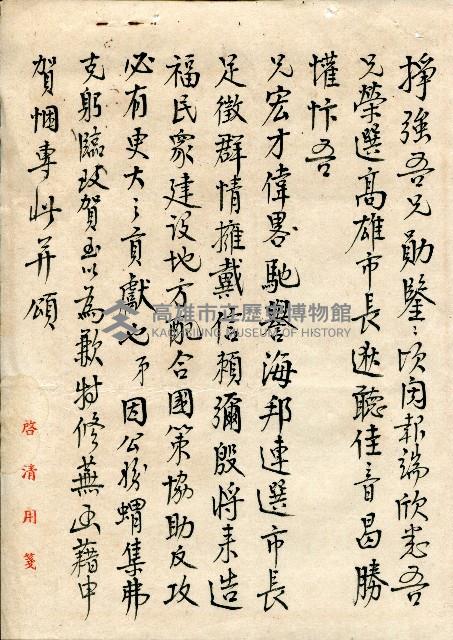 掙強吾兄勛鑒:頃閱報端欣悉吾
兄榮選高雄市長逖聽佳音曷勝
懽忭吾
兄宏才偉畧馳譽海邦連選市長
足徵群情擁戴倍賴彌殷將來造
福民眾建設地方配合國策協助反攻
必有更大之貢獻也弟因公務蝟集弗
克躬臨致賀至以為歉特修蕪函藉申
賀悃專此并頌
啓清用箋
高雄市立歷史博物館
KAOHSIUNG MUSEUM OF HISTORY